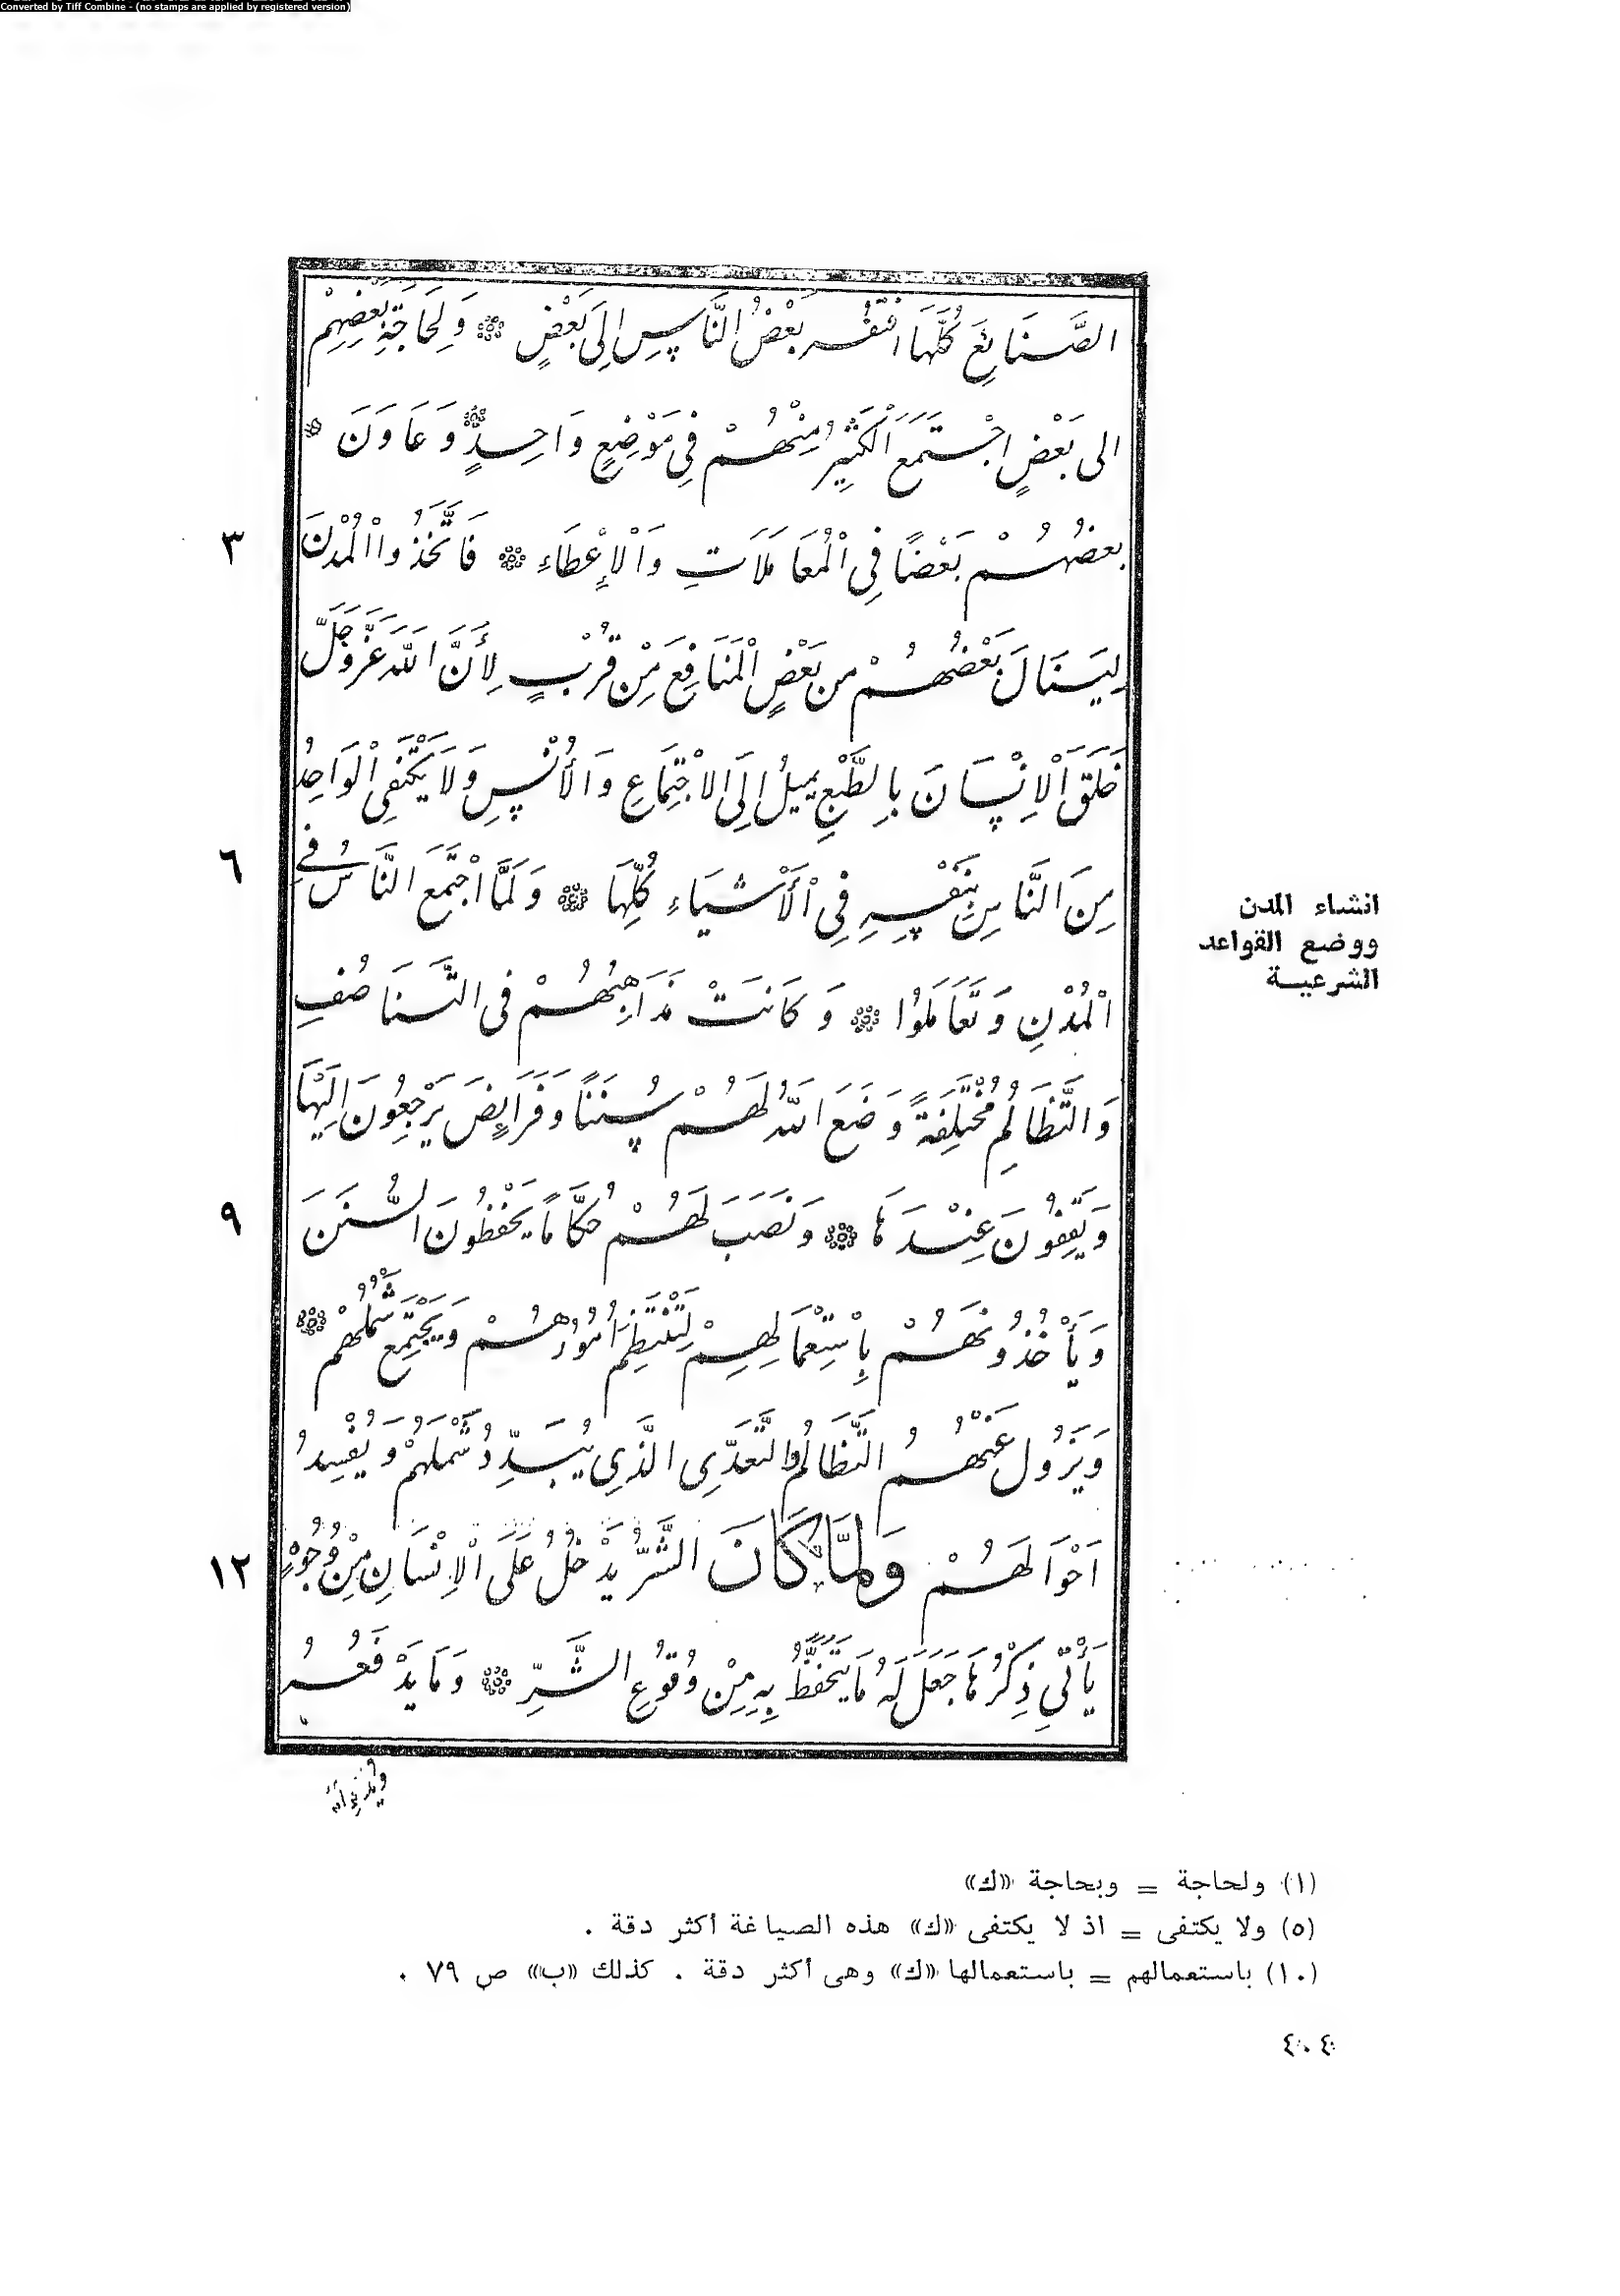 Converted by Tiff Combine - (no stamps are applied by registered version)
الصَّنَايِعَ كُلَّهَا افْتَقَرَ بَعْضُ النَّاسِ إِلَى بَعْضٍ ۞ وَلِحَاجَةِ بَعْضِهِمْ
الى بَعْضٍ اجْتَمَعَ الْكَثِيرُ مِنْهُمْ فِي مَوْضِعٍ وَاحِدٍ ۞ وَعَاوَنَ ۞
٣
بعضُهُمْ بَعْضًا فِي الْمُعَامَلَاتِ وَالْإِعْطَاءِ ۞ فَاتَّخَذُوا الْمُدْنَ
لِيَنَالَ بَعْضُهُمْ من بَعْضٍ الْمَنَافِعَ مِنْ قُرْبٍ لِأَنَّ اللَّهَ عَزَّ وَجَلَّ
خَلَقَ الْإِنْسَانَ بِالطَّبْعِ يميلُ إِلَى الاجْتِمَاعِ وَالْأُنْسِ وَلَا يَكْتَفِي الْوَاحِدُ
٦
مِنَ النَّاسِ بِنَفْسِهِ فِي الْأَشْيَاءِ كُلِّهَا ۞ وَلَمَّا اجْتَمَعَ النَّاسُ فِي
انشاء المدن
ووضع القواعد
الشرعية
الْمُدْنِ وَتَعَامَلُوا ۞ وَكَانَتْ مَذَاهِبُهُمْ في التَّنَاصُفِ
وَالتَّظَالُمِ مُخْتَلِفَةً وَضَعَ اللهُ لَهُمْ سُنَنًا وَفَرَايِضَ يَرْجِعُونَ إِلَيْهَا
٩
وَيَقِفُونَ عِنْدَهَا ۞ وَنَصَبَ لَهُمْ حُكَّامًا يَحْفَظُونَ السُّنَنَ
وَيَأْخُذُونَهُمْ بِاسْتِعْمَالِهِمْ لِتَنْتَظِمَ أُمُورُهُمْ وَيَجْتَمِعَ شَمْلُهُمْ ۞
وَيَزُولَ عَنْهُمُ التَّظَالُمُ وَالتَّعَدِّي الَّذِي يُبَدِّدُ شَمْلَهُمْ وَيُفْسِدُ
١٢
اَحْوَالَهُمْ وَلَمَّا كَانَ الشَّرُّ يَدْخُلُ عَلَى الْإِنْسَانِ مِنْ وُجُوهٍ
يَأْتِي ذِكْرُهَا جَعَلَ لَهُ مَا يَتَحَفَّظُ بِهِ مِنْ وُقُوعِ الشَّرِّ ۞ وَمَا يَدْفَعُهُ
(١) ولحاجة = وبحاجة «ك»
(٥) ولا يكتفى = اذ لا يكتفى «ك» هذه الصياغة أكثر دقة .
(١٠) باستعمالهم = باستعمالها «ك» وهى أكثر دقة . كذلك «ب» ص ٧٩ .
٤٠٤